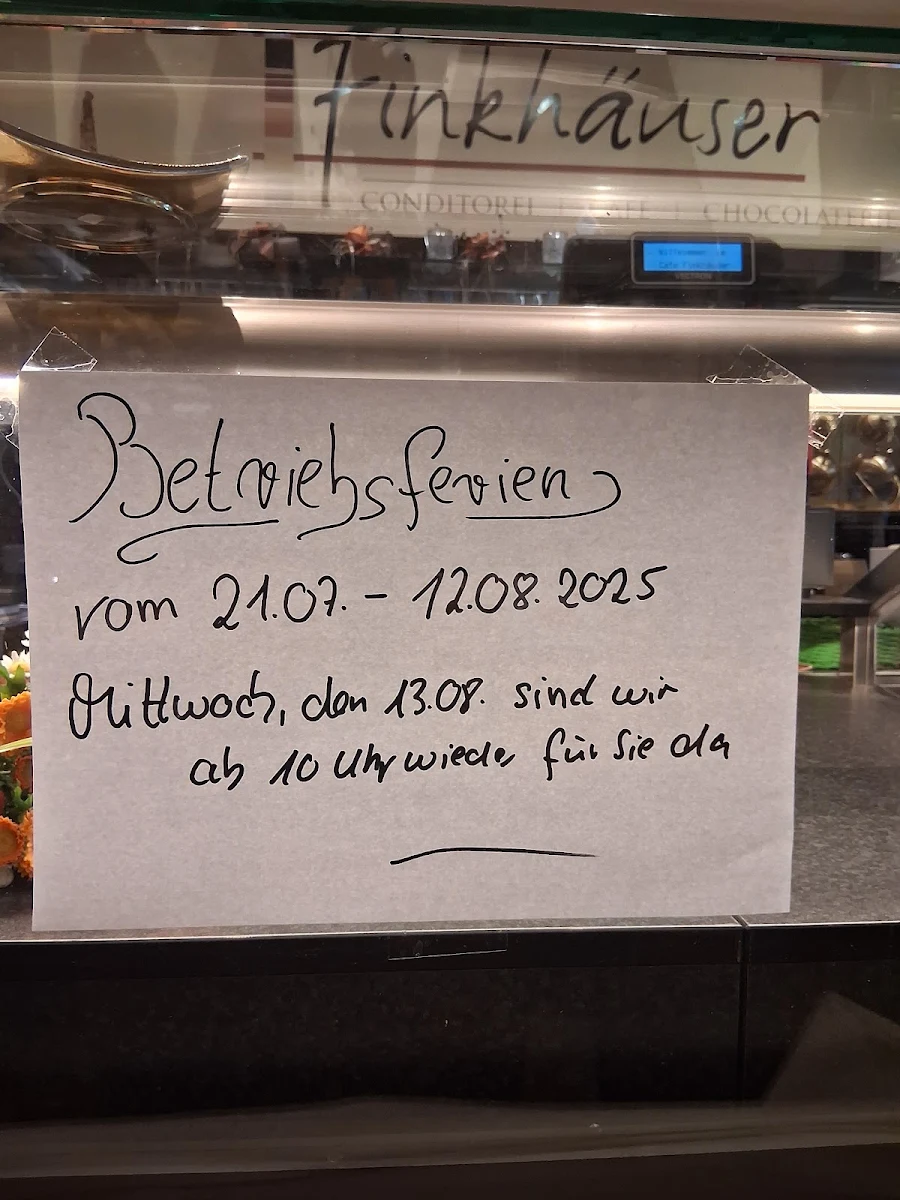 Finkhäuser
CONDITOREI | CAFÉ | CHOCOLATERIE
Willkommen im
Cafe Finkhäuser
Betriebsferien
vom 21.07. - 12.08.2025
Mittwoch, den 13.08. sind wir
ab 10 Uhr wieder für Sie da